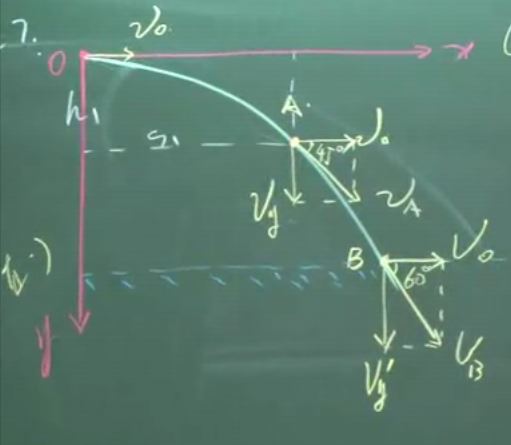 7.
v₀
O
x
h₁
A
S₁
45°
v₀
Vy
vA
B
V₀
60°
y
Vy'
VB